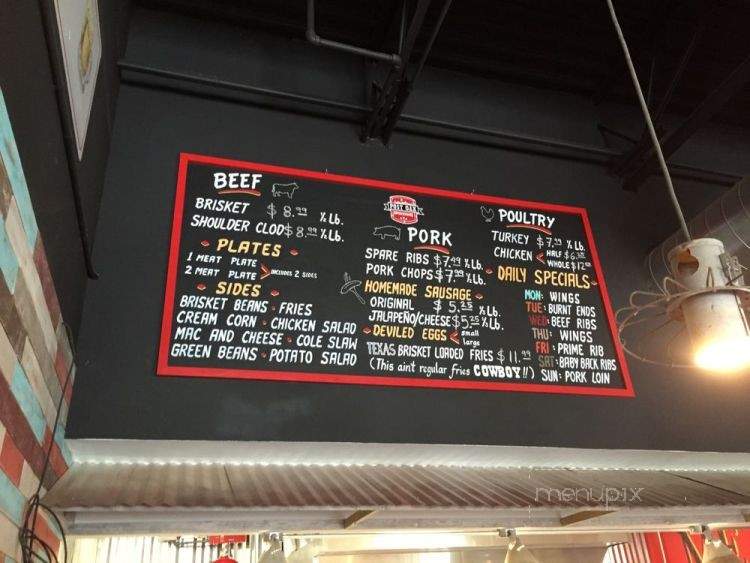 BEEF
BRISKET $8.99 ½ Lb.
SHOULDER CLOD $8.99 ½ Lb.
PLATES
1 MEAT PLATE
2 MEAT PLATE
INCLUDES 2 SIDES
SIDES
BRISKET BEANS • FRIES
CREAM CORN • CHICKEN SALAD
MAC AND CHEESE • COLE SLAW
GREEN BEANS • POTATO SALAD
POST OAK
PORK
SPARE RIBS $7.99 ½ Lb.
PORK CHOPS $7.99 ½ Lb.
HOMEMADE SAUSAGE
ORIGINAL $5.25 ½ Lb.
JALAPEÑO/CHEESE $5.25 ½ Lb.
DEVILED EGGS
small
large
TEXAS BRISKET LOADED FRIES $11.99
(This ain't regular fries COWBOY!!)
POULTRY
TURKEY $7.99 ½ Lb.
CHICKEN
HALF
WHOLE
DAILY SPECIALS
MON: WINGS
TUE: BURNT ENDS
WED: BEEF RIBS
THU: WINGS
FRI: PRIME RIB
SAT: BABY BACK RIBS
SUN: PORK LOIN
menupix